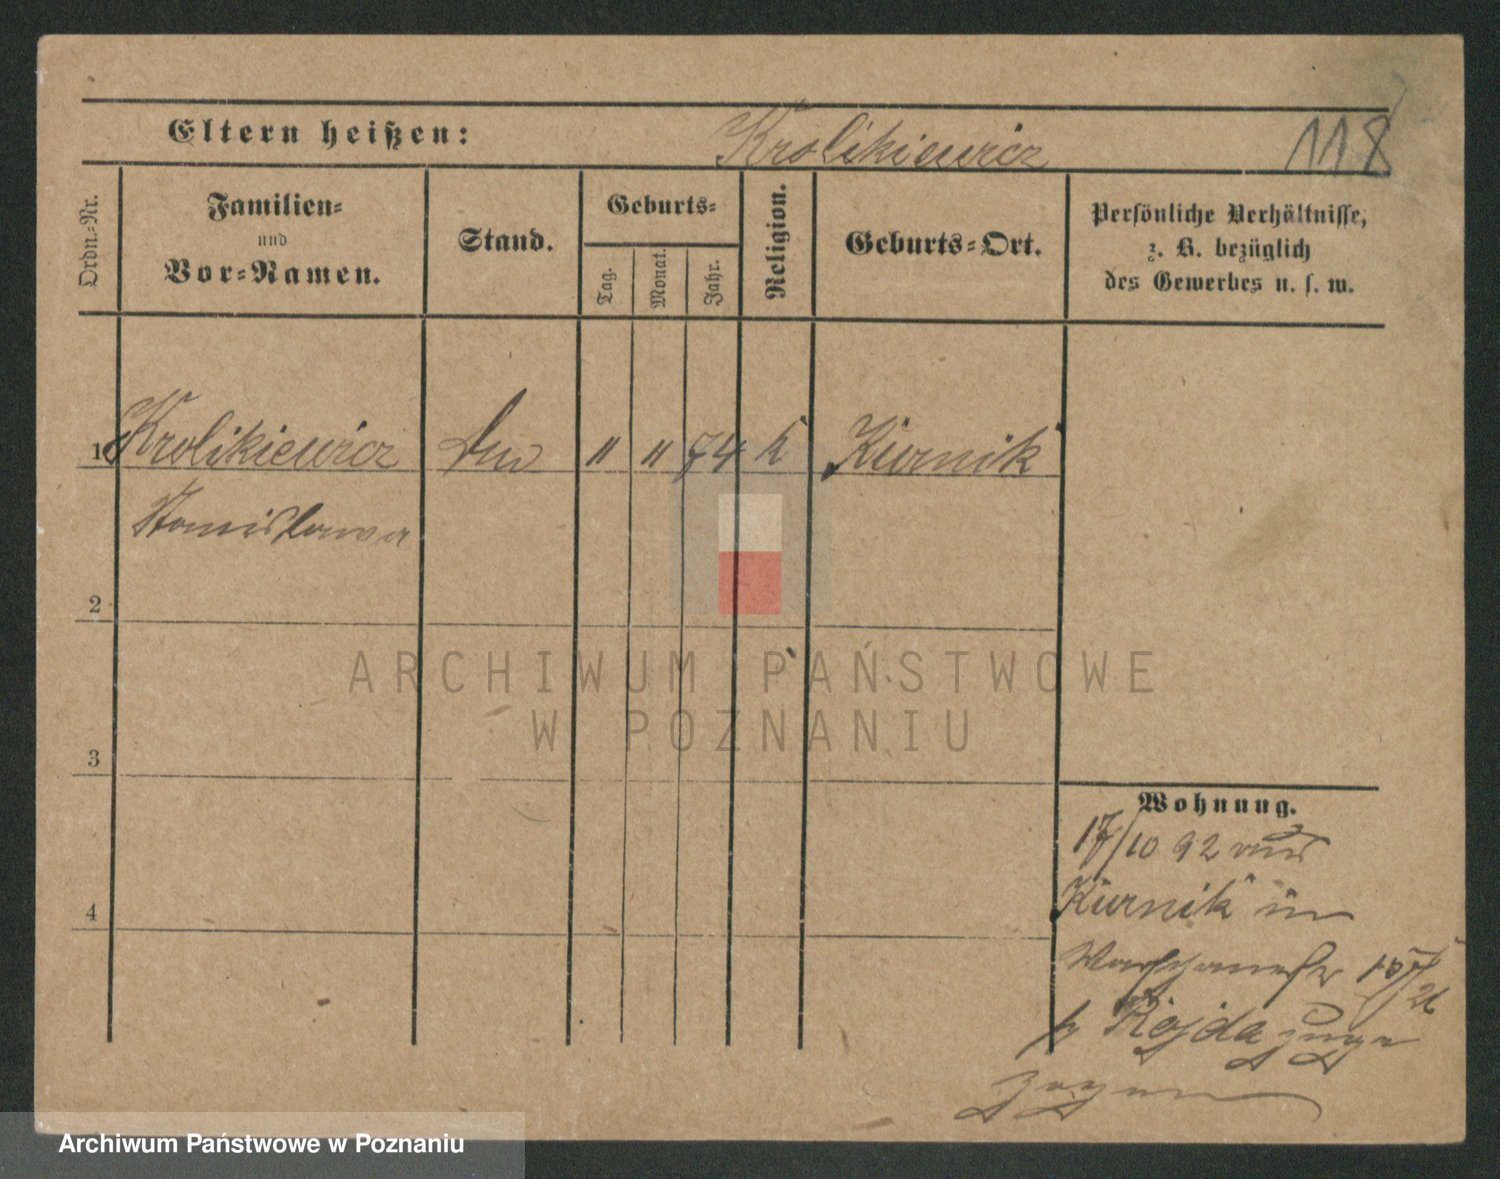 Eltern heißen: Krolikiewicz 118
Ordn.-Nr.
Familien-
und
Vor-Namen.
Stand.
Geburts-
Tag.
Monat.
Jahr.
Religion.
Geburts-Ort.
Persönliche Verhältnisse,
z. B. bezüglich
des Gewerbes u. s. w.
1 Krolikiewicz " " 74 k Kurnik
Stanislawa
2
3
4
Wohnung.
17/10 92 aus
Kurnik in
b Rojda zuge
zogen
ARCHIWUM PAŃSTWOWE
W POZNANIU
Archiwum Państwowe w Poznaniu